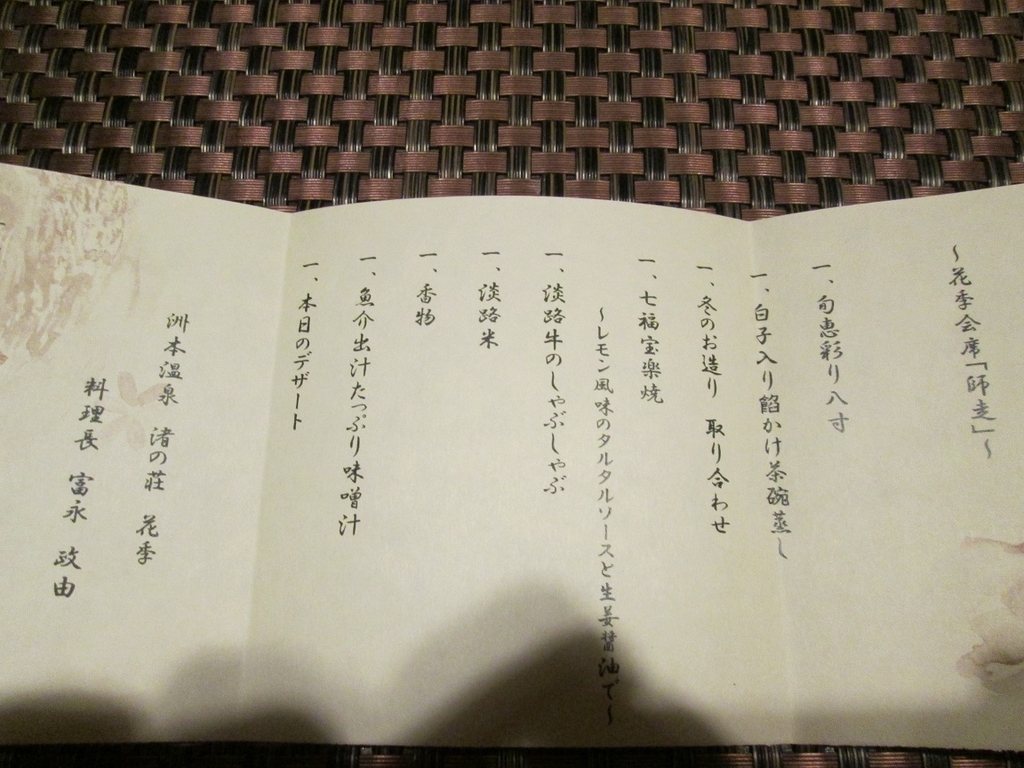 ～花季会席「師走」～
一、旬恵彩り八寸
一、白子入り餡かけ茶碗蒸し
一、冬のお造り 取り合わせ
一、七福宝楽焼
～レモン風味のタルタルソースと生姜醤油で～
一、淡路牛のしゃぶしゃぶ
一、淡路米
一、香物
一、魚介出汁たっぷり味噌汁
一、本日のデザート
洲本温泉 渚の荘 花季
料理長 富永 政由